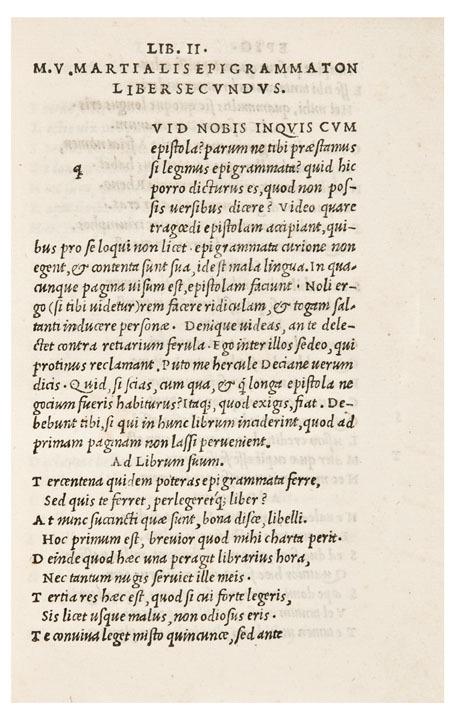 LIB. II.
M.V.MARTIALIS EPIGRAMMATON
LIBER SECVNDVS.
VID NOBIS INQVIS CVM
epistola?parum ne tibi præstamus
q
si legimus epigrammata? quid hic
porro dicturus es,quod non pos-
sis uersibus dicere? Video quare
tragœdi epistolam accipiant,qui-
bus pro se loqui non licet. epigrammata curione non
egent,& contenta sunt sua, idest mala lingua.In qua-
cunque pagina uisum est,epistolam faciunt. Noli er-
go (si tibi uidetur)rem facere ridiculam, & togam sal-
tanti inducere personæ. Denique uideas, an te dele-
ctet contra retiarium ferula. Ego inter illos sedeo, qui
protinus reclamant. Puto me hercule Deciane uerum
dicis. Quid, si scias, cum qua, & q̃ longa epistola ne
gocium fueris habiturus?Itaq;, quod exigis,fiat. De-
bebunt tibi,si qui in hunc librum inciderint,quod ad
primam paginam non lassi peruenient.
Ad Librum suum.
T ercentena quidem poteras epigrammata ferre,
Sed quis te ferret, perlegeretq; liber?
A t nunc succincti quæ sunt, bona disce, libelli.
Hoc primum est, breuior quod mihi charta perit.
D einde quod hæc una peragit librarius hora,
Nec tantum nugis seruiet ille meis.
T ertia res hæc est, quod si cui forte legeris,
Sis licet usque malus, non odiosus eris.
T e conuiua leget misto quincunce, sed ante